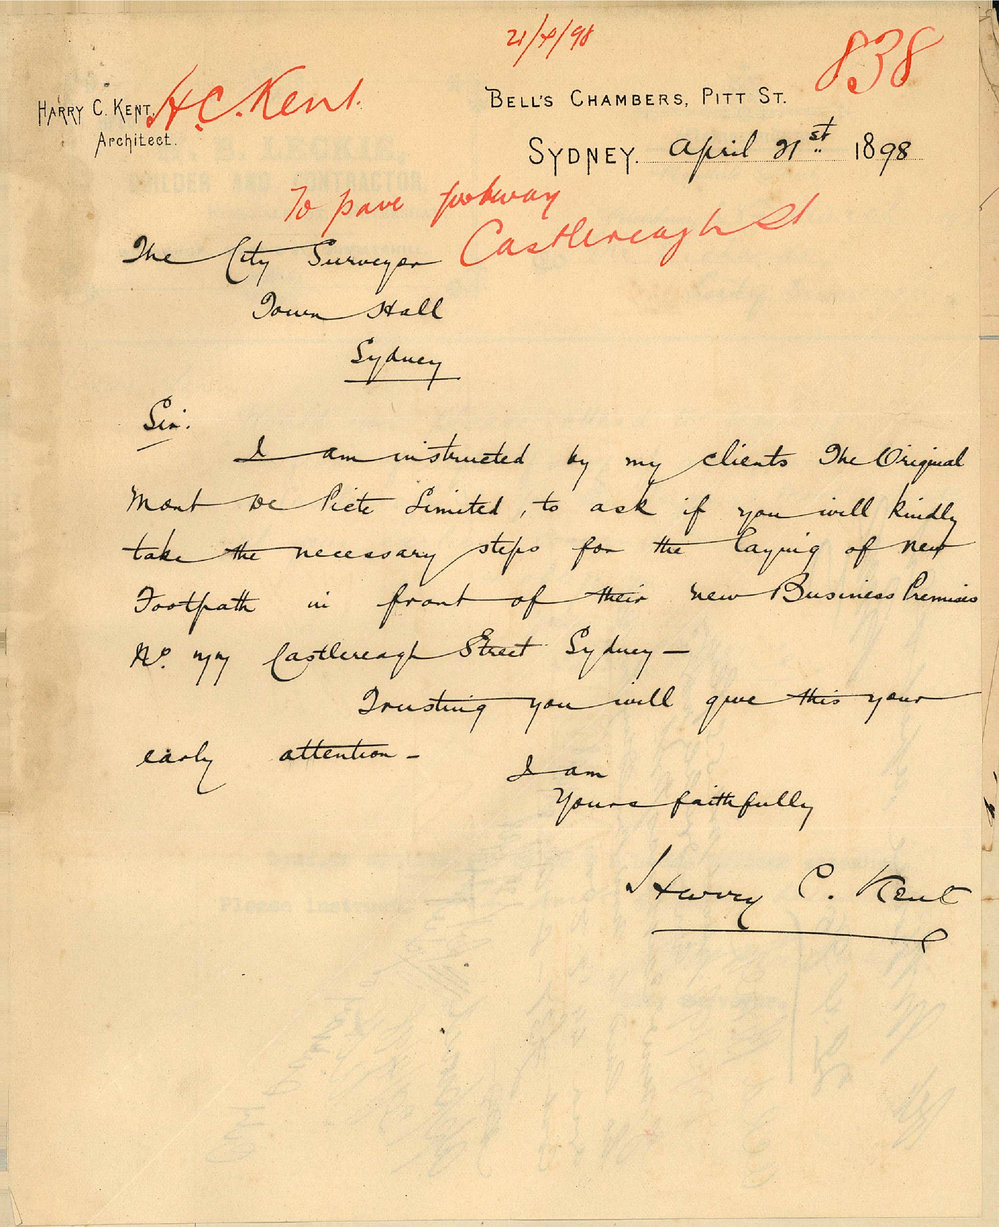 21/4/98
838
HARRY C. KENT,
Architect.
H.C. Kent.
BELL'S CHAMBERS, PITT ST.
SYDNEY. April 21st 1898
To pave footway
Castlereagh St
The City Surveyor
Town Hall
Sydney
Sir.
I am instructed by my clients The Original
Mont De Piete Limited, to ask if you will kindly
take the necessary steps for the laying of new
Footpath in front of their new Business Premises
No. 74 Castlereagh Street Sydney —
Trusting you will give this your
early attention —
I am
Yours faithfully
Harry C. Kent